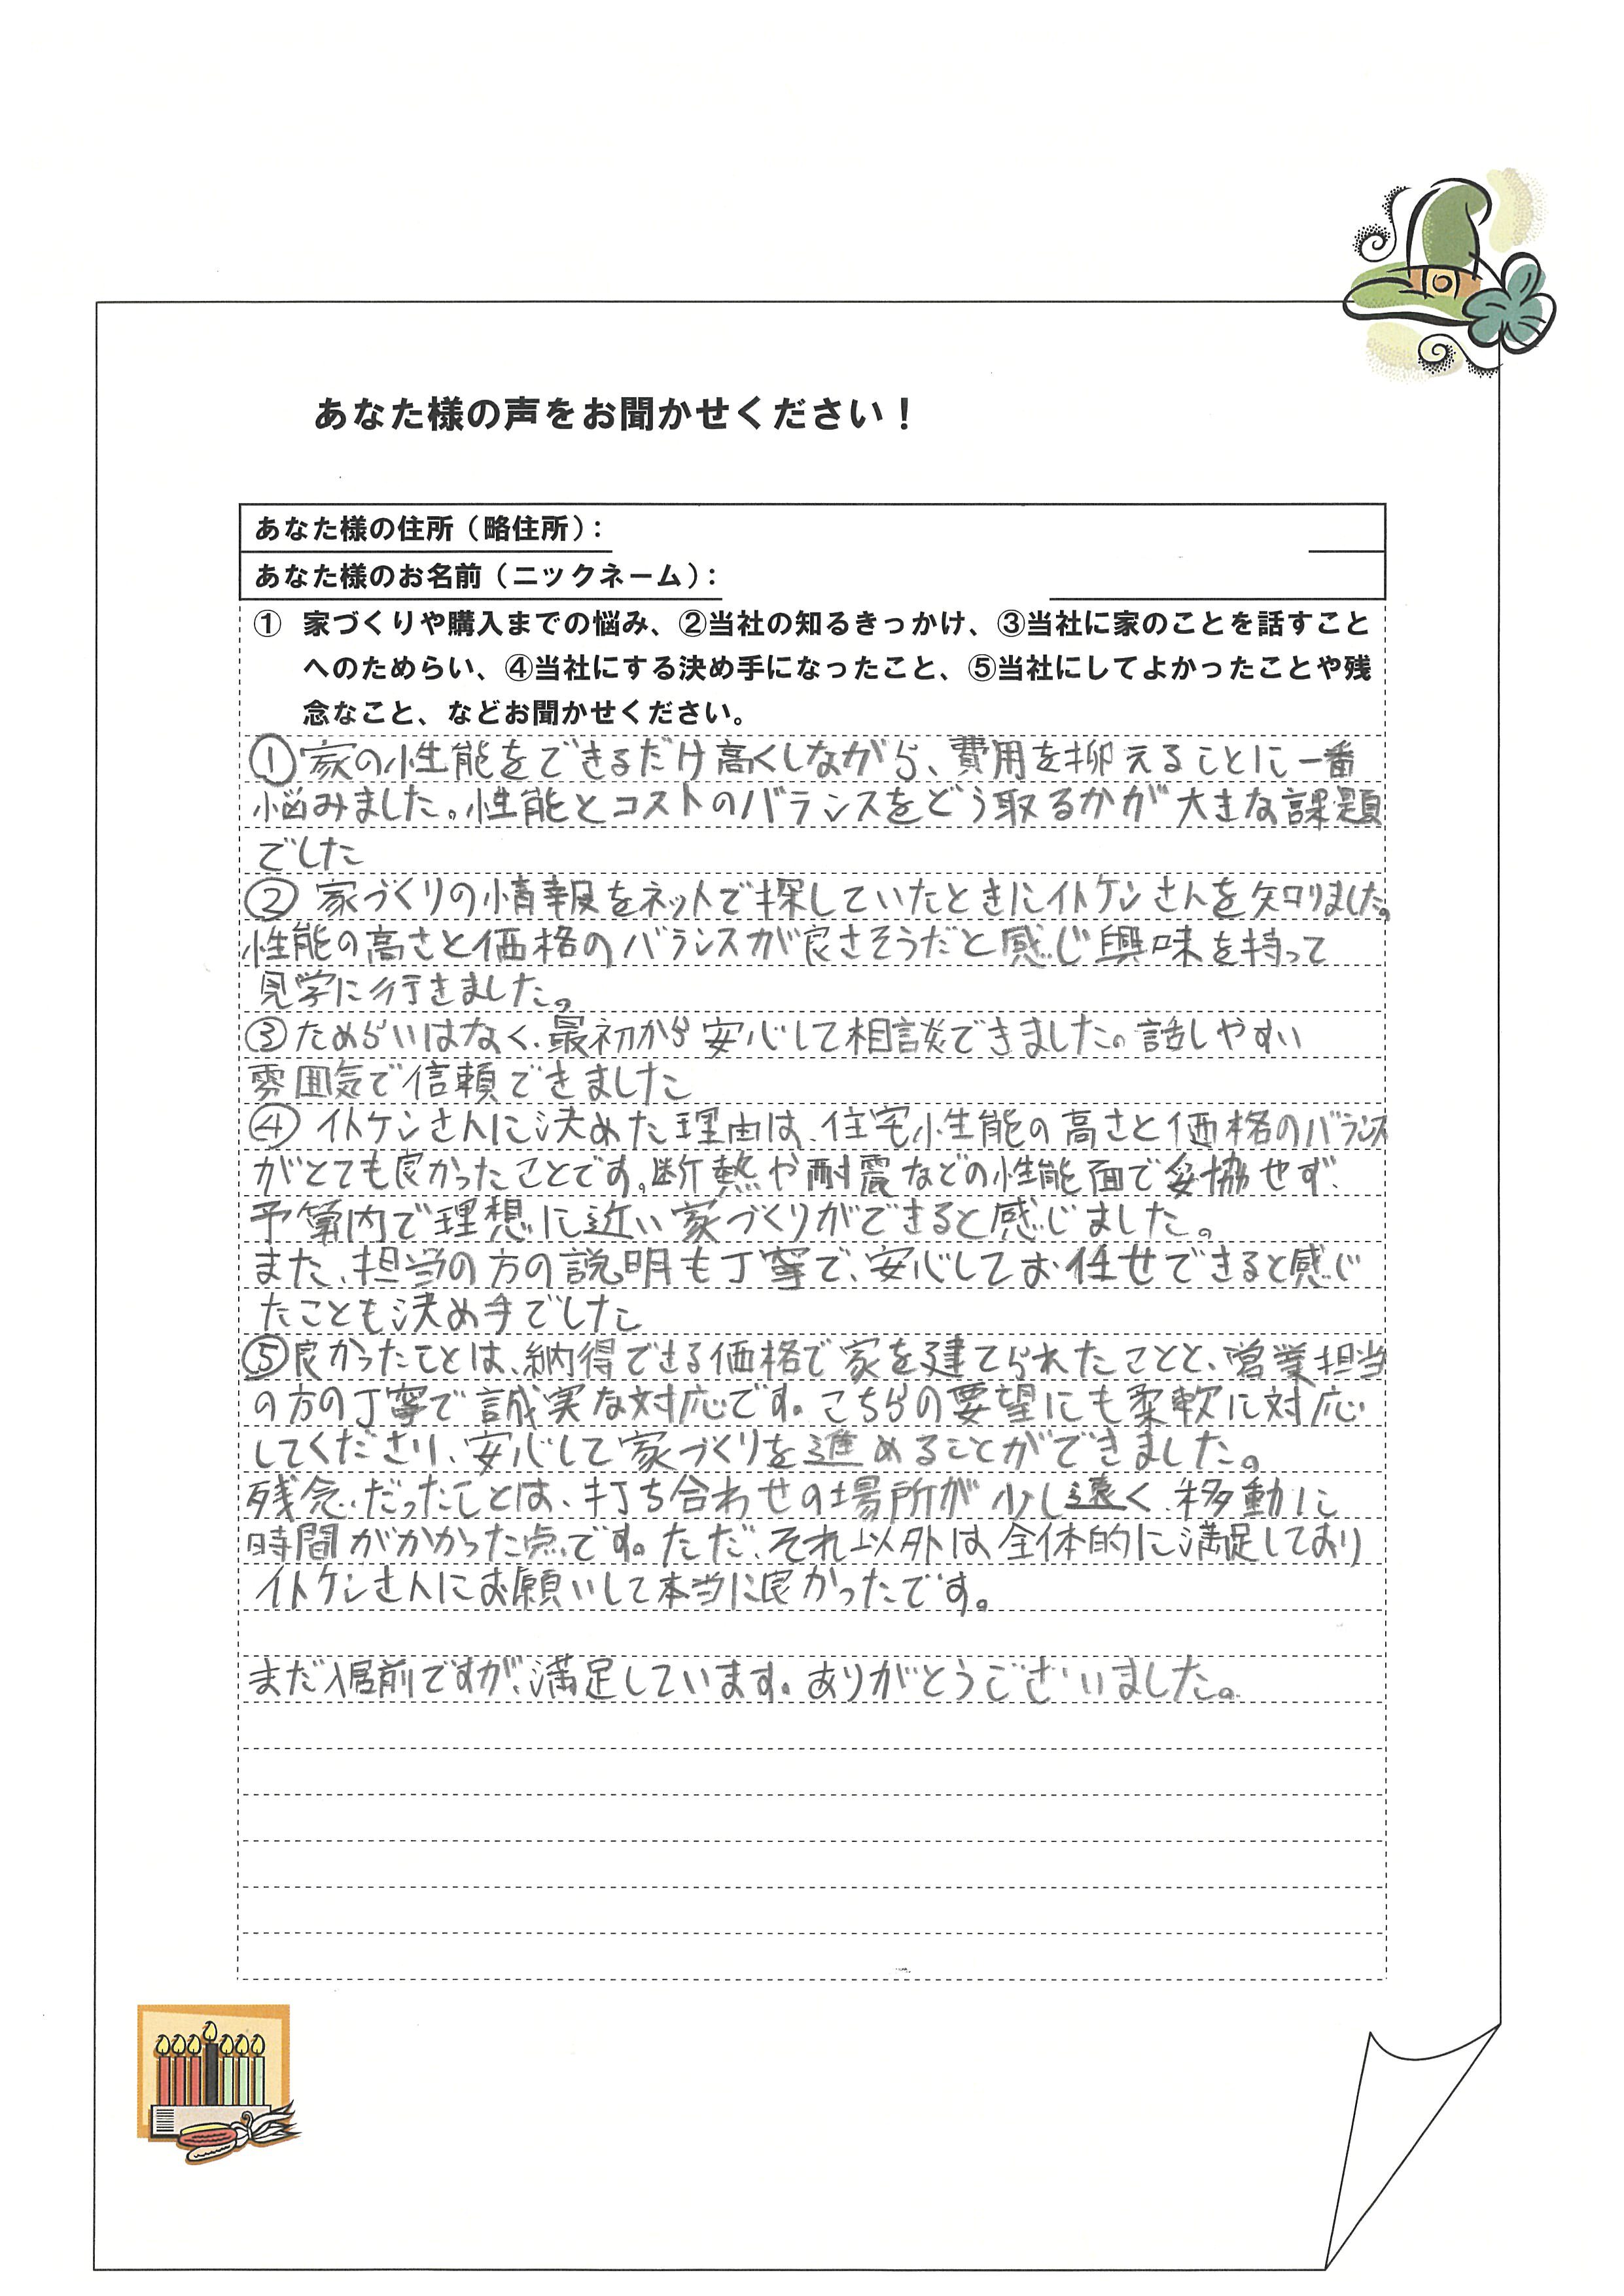 あなた様の声をお聞かせください！
あなた様の住所（略住所）：
あなた様のお名前（ニックネーム）：
① 家づくりや購入までの悩み、②当社の知るきっかけ、③当社に家のことを話すこと
へのためらい、④当社にする決め手になったこと、⑤当社にしてよかったことや残
念なこと、などお聞かせください。
①家の性能をできるだけ高くしながら、費用を抑えることに一番
悩みました。性能とコストのバランスをどう取るかが大きな課題
でした
②家づくりの情報をネットで探していたときにイトケンさんを知りました。
性能の高さと価格のバランスが良さそうだと感じ興味を持って
見学に行きました。
③ためらいはなく、最初から安心して相談できました。話しやすい
雰囲気で信頼できました
④イトケンさんに決めた理由は、住宅性能の高さと価格のバランス
がとても良かったことです。断熱や耐震などの性能面で妥協せず、
予算内で理想に近い家づくりができると感じました。
また、担当の方の説明も丁寧で、安心してお任せできると感じ
たことも決め手でした
⑤良かったことは、納得できる価格で家を建てられたことと、営業担当
の方の丁寧で誠実な対応です。こちらの要望にも柔軟に対応
してくださり、安心して家づくりを進めることができました。
残念だったことは、打ち合わせの場所が少し遠く、移動に
時間がかかった点です。ただ、それ以外は全体的に満足しており
イトケンさんにお願いして本当に良かったです。
まだ入居前ですが、満足しています。ありがとうございました。